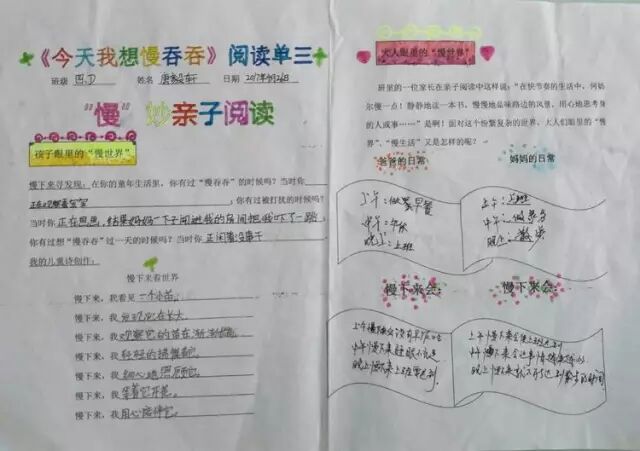 《今天我想慢吞吞》阅读单三
班级 四.D 姓名 日期
"慢" 妙亲子阅读
孩子眼里的"慢世界"
慢下来寻发现：在你的童年生活里，你有过"慢吞吞"的时候吗？当时你
正在观察 ，你有过被打扰的时候吗？
当时你正在思思，结果妈妈一下子闯进我的房间把我吓了一跳，
你有过想"慢吞吞"过一天的时候吗？当时你正闲着没事干
我的儿童诗创作：
慢下来看世界
慢下来，我看见一个小苗。
慢下来，我发现它在长大。
慢下来，我观察它的苗在渐渐
慢下来，我轻轻的
慢下来，我细心地照顾它。
慢下来，我等着它开花。
慢下来，我用心陪伴它。
大人眼里的"慢世界"
班里的一位家长在亲子阅读中这样说："在快节奏的生活中，何妨
尔慢一点！静静地读一本书，慢慢地品味路边的风景，用心地思考身
的人或事……"是啊！面对这个纷繁复杂的世界，大人们眼里的"慢
界"、"慢生活"又是怎样的呢？
爸爸的日常 妈妈的日常
上午：做早餐
中午：午休
晚上：上班
上午：上班
中午：做
晚上：
慢下来会： 慢下来会：
上午慢下来会没有早
中午慢下来
晚上慢下来上班
上午慢下来会上班迟到
中午慢下来会
晚上慢下来